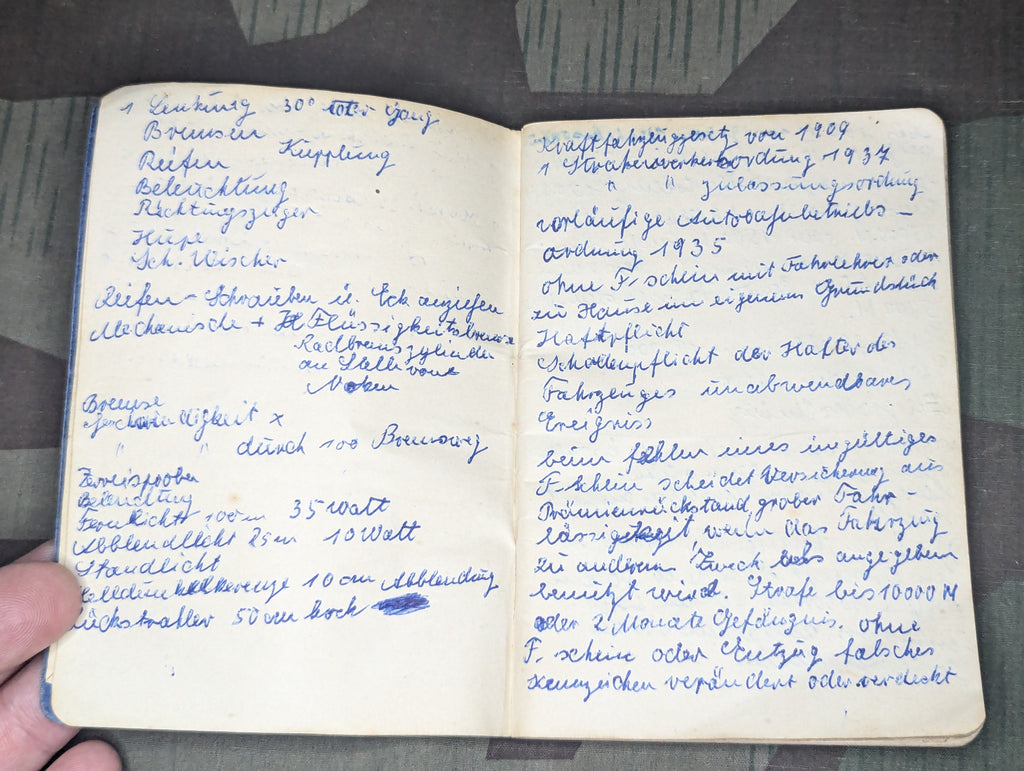 1 Lenkung 30° toter Gang
Bremsen
Reifen Kupplung
Beleuchtung
Richtungszeiger
Hupe
Sch. Wischer
Reifen - Schrauben u. Eck anziehen
Mechanische + Flüssigkeitsbremse
Radbremszylinder
an Stelle von
Noken
Bremse
Geschwindigkeit x
" " durch 100 Bremsweg
Beleuchtung
Fernlicht 100 m 35 Watt
Abblendlicht 25 m 10 Watt
Standlicht
10 cm Abblendung
Rückstrahler 50 cm hoch
Kraftfahrzeuggesetz von 1909
1 1937
" " zulassungsordnung
vorläufige Autobahnbetriebs -
ordnung 1935
ohne F. schein mit Fahrlehrer oder
zu Hause im eigenem Grundstück
Haftpflicht
Schadenpflicht der Halter des
Fahrzeuges unabwendbares
Ereigniss
beim fehlen eines ingültiges
F. schein scheidet Versicherung aus
Prämienrückstand grober Fahr -
lässigkeit wenn das Fahrzeug
zu anderem Zweck als angegeben
benützt wird. Strafe bis 10000 M
oder 2 Monate Gefängnis. ohne
F. schein oder Entzug falsches
Kennzeichen verändert oder verdeckt